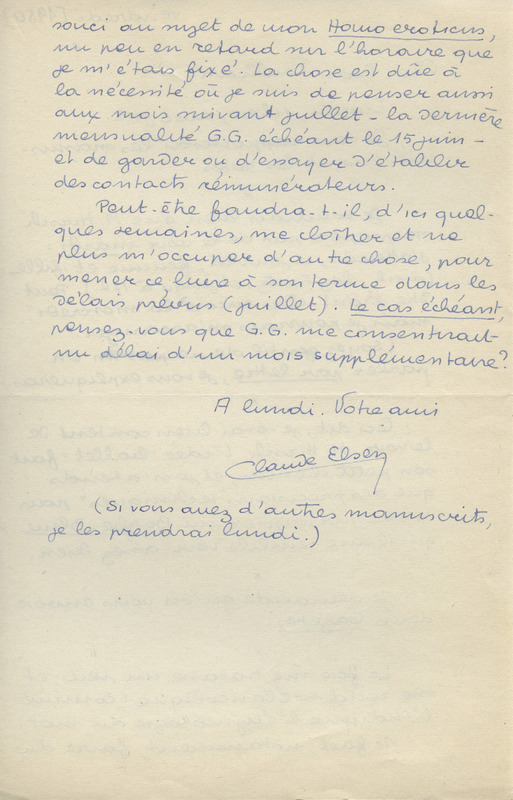 souci au sujet de mon Homo eroticus,
un peu en retard sur l'horaire que
je m'étais fixé. La chose est dûe à
la nécessité où je suis de penser aussi
aux mois suivant juillet – la dernière
mensualité G.G. échéant le 15 juin –
et de garder ou d'essayer d'établir
des contacts rémunérateurs.
Peut-être faudra-t-il, d'ici quel-
ques semaines, me cloîtrer et ne
plus m'occuper d'autre chose, pour
mener ce livre à son terme dans les
délais prévus (juillet). Le cas échéant,
pensez-vous que G.G. me consentirait
un délai d'un mois supplémentaire?
A lundi. Votre ami
Claude Elsen
(Si vous avez d'autres manuscrits,
je les prendrai lundi.)